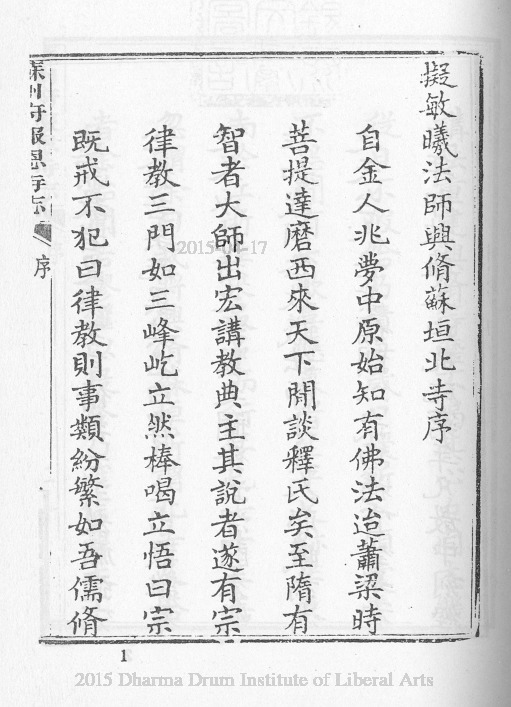 擬敏曦法師興脩蘇垣北寺序
自金人兆夢中原始知有佛法迨蕭梁時
菩提達磨西來天下閒談釋氏矣至隋有
智者大師出宏講教典主其說者遂有宗
律教三門如三峰屹立然棒喝立悟曰宗
既戒不犯曰律教則事類紛繁如吾儒脩
蘇州府報恩寺志
序
2015-04-17
1
2015 Dharma Drum Institute of Liberal Arts